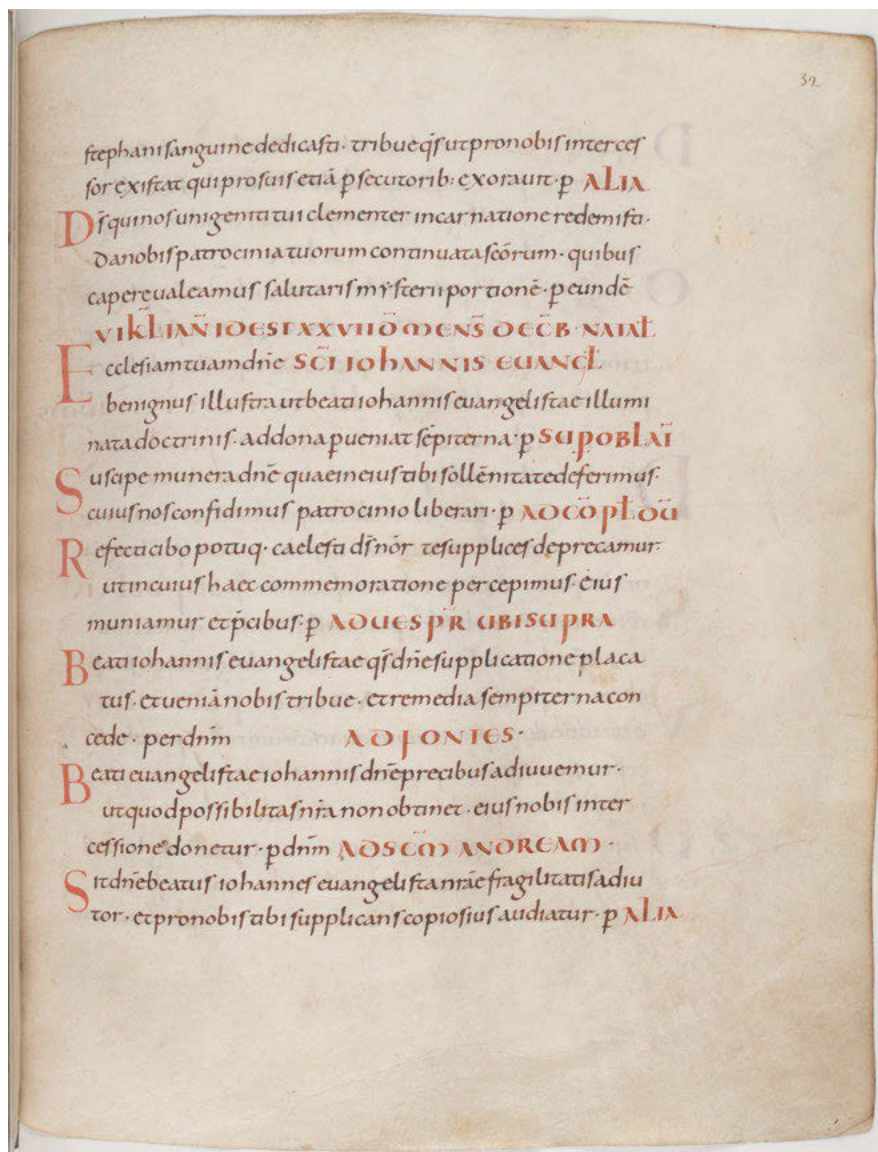 32
stephani sanguine dedicasti · tribue q̄s ut pro nobis interces
sor existat qui pro suis etiā p̄secutorib: exorauit · p̄ ALIA
D̄s qui nos unigeniti tui clementer incarnatione redemisti ·
da nobis patrocinia tuorum continuata sc̄orum · quibus
capere ualeamus salutaris mysterii portionē · p̄ eundē
VI KL IAN̄ ID EST XXVII D̄ MENS̄ DEC̄B · NATAL̄
Ecclesiam tuam dn̄e SC̄I IOHANNIS EUANGL̄
benignus illustra ut beati iohannis euangelistae illumi
nata doctrinis · ad dona p̄ueniat sēpiterna · p̄ SUP OBLAT̄
Suscipe munera dn̄e quae in eius tibi sollēnitate deferimus ·
cuius nos confidimus patrocinio liberari · p̄ AD CŌPL̄ DŪ
Refecti cibo potuq · caelesti d̄s nōr te supplices deprecamur ·
ut in cuius haec commemoratione percepimus · eius
muniamur et p̄cibus · p̄ AD UESPR̄ UBI SUPRA
Beati iohannis euangelistae q̄s dn̄e supplicatione placa
tus · et ueniā nobis tribue · et remedia sempiterna con
cede · per dn̄m AD FONTES ·
Beati euangelistae iohannis dn̄e precibus adiuuemur ·
ut quod possibilitas nr̄a non obtinet · eius nobis inter
cessione donetur · p̄ dn̄m AD SC̄M ANDREAM ·
Sit dn̄e beatus iohannes euangelista nr̄ae fragilitatis adiu
tor · et pro nobis tibi supplicans copiosius audiatur · p̄ ALIA